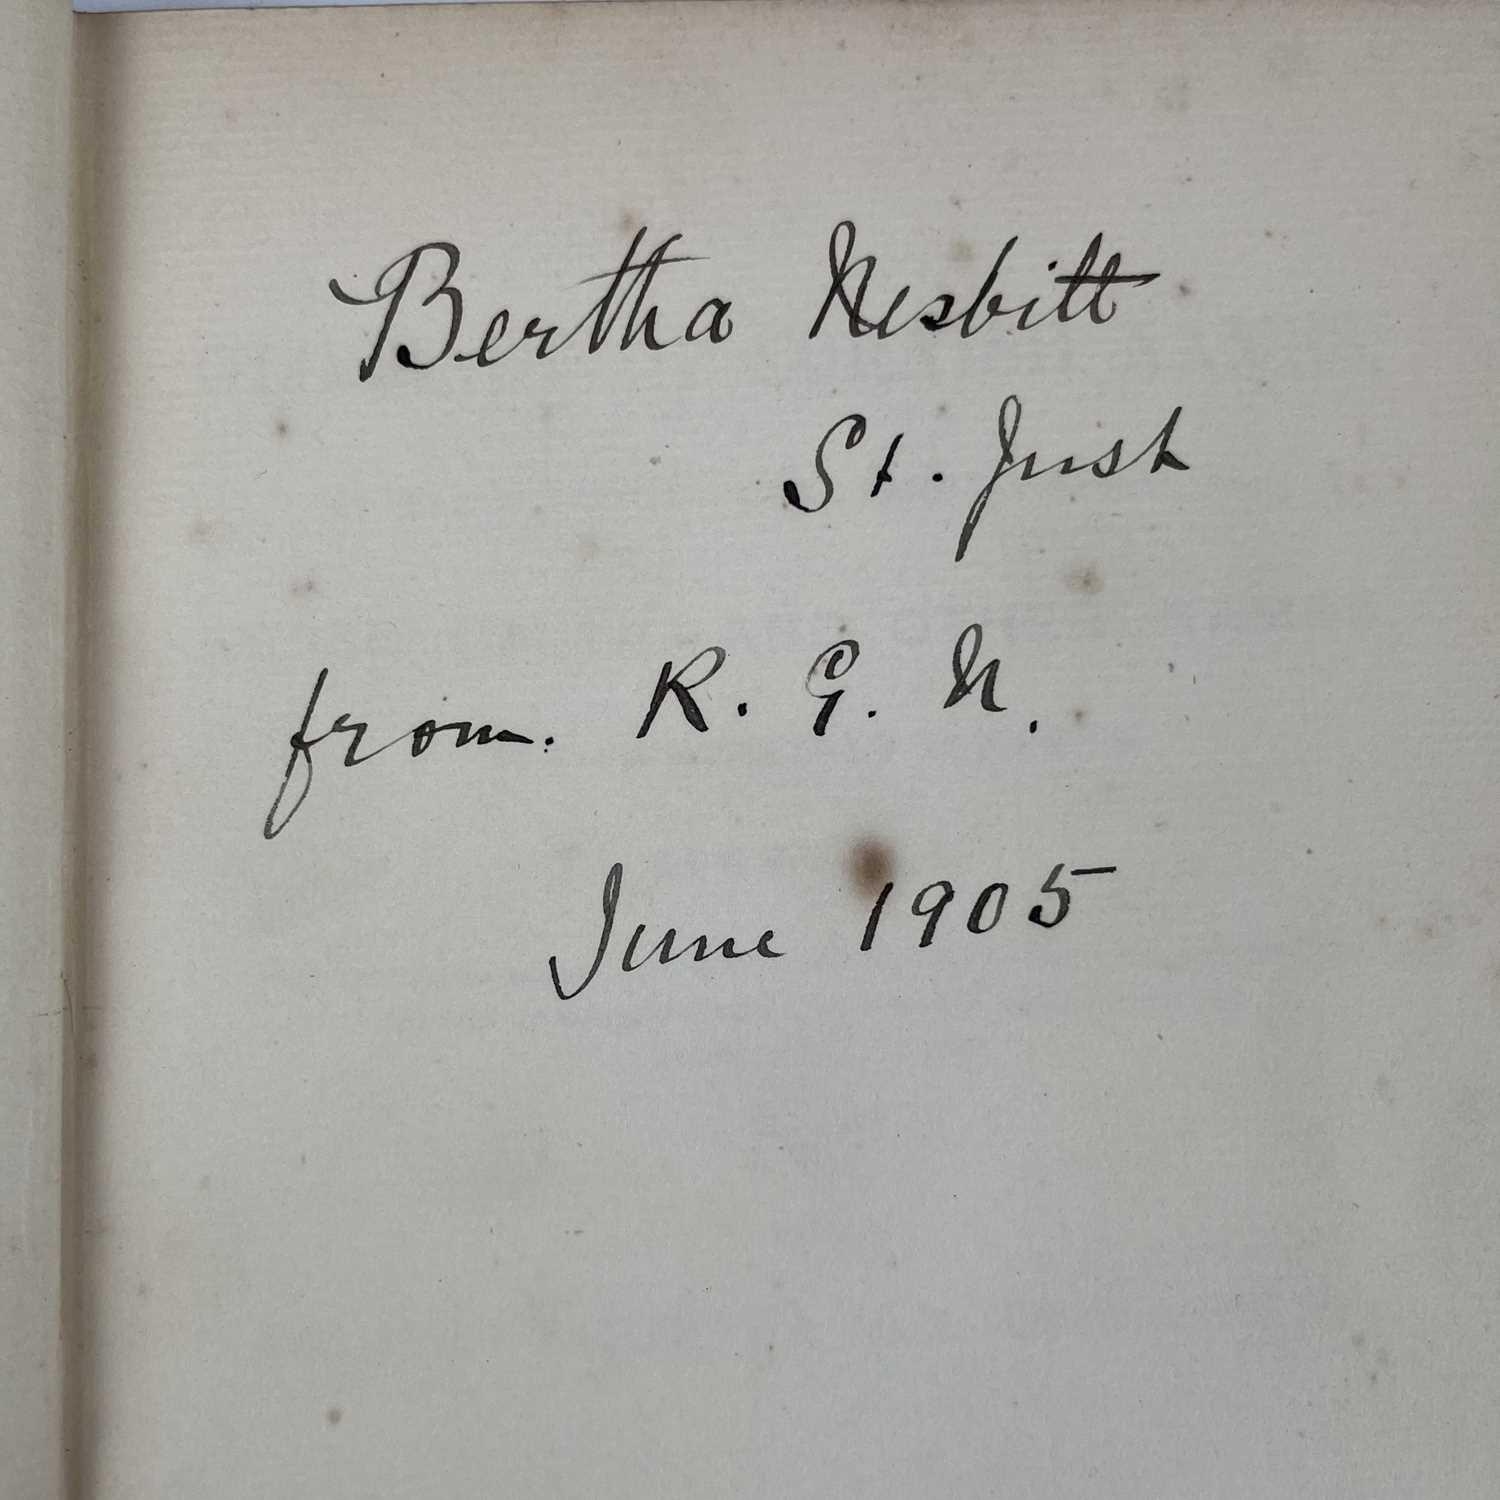 Bertha Nesbitt
St. Just
from. R. G. N.
June 1905